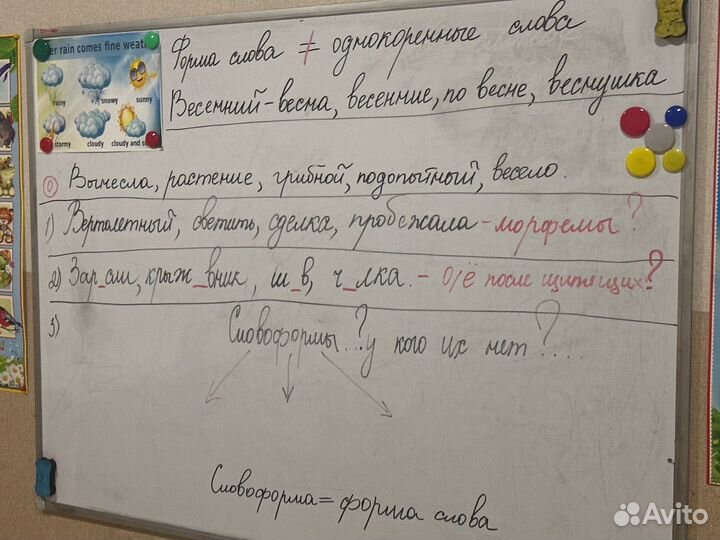 er rain comes fine weath
rainy
snowy
sunny
stormy
cloudy
cloudy and s
Форма слова ≠ однокоренные слова
Весенний-весна, весенние, по весне, веснушка
0) Вынесла, растение, грибной, подопытный, весело.
1) Вертолетный, светить, сделка, пробежала - морфемы?
2) Зар_сли, крыж_вник, ш_в, ч_лка. - О/ё после шипящих?
3) Словоформы...? у кого их нет?....
Словоформа = форма слова
Avito